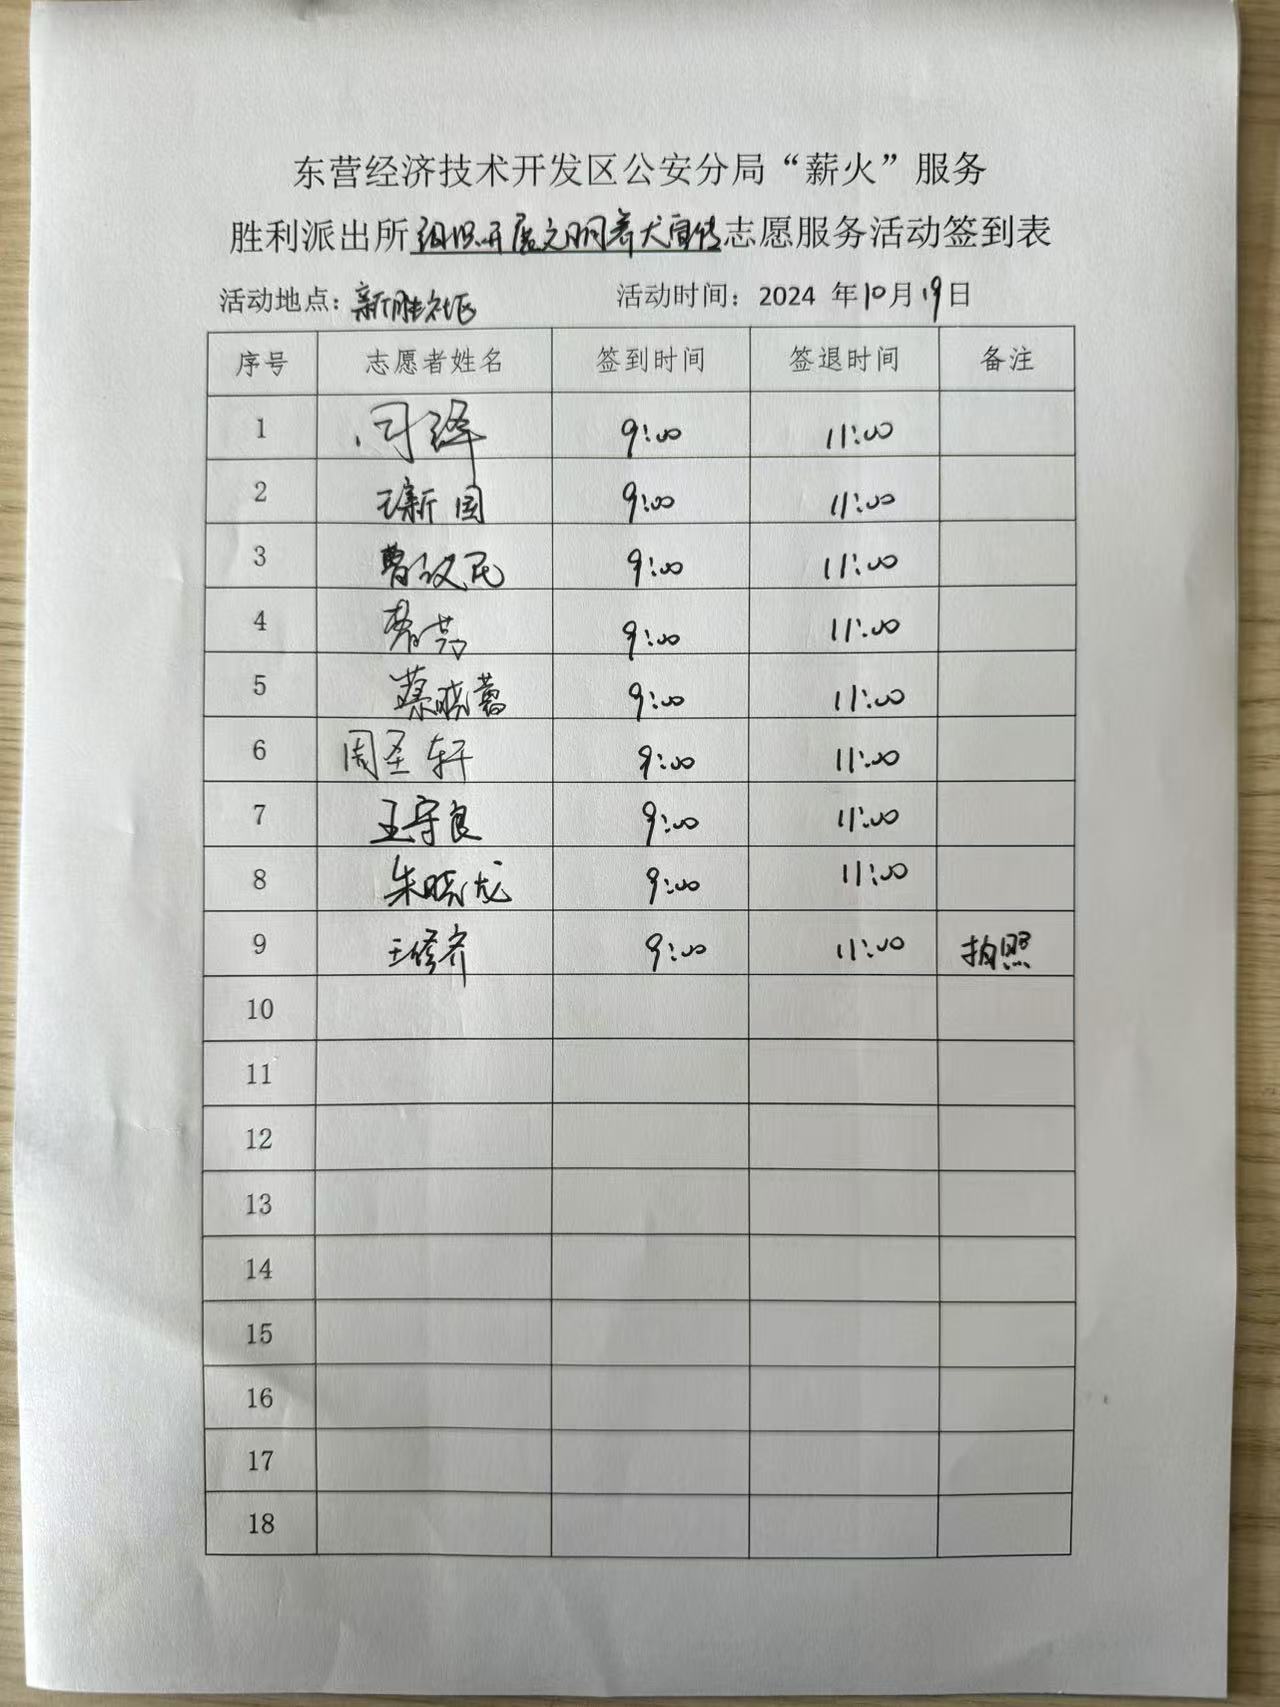 东营经济技术开发区公安分局“薪火”服务
胜利派出所组织开展文明养犬宣传志愿服务活动签到表
活动地点：新胜社区 活动时间：2024 年10月19日
序号 志愿者姓名 签到时间 签退时间 备注
1 闫绎 9:00 11:00
2 王新国 9:00 11:00
3 曹政民 9:00 11:00
4 9:00 11:00
5 蔡晓蕾 9:00 11:00
6 周圣轩 9:00 11:00
7 王守良 9:00 11:00
8 朱晓龙 9:00 11:00
9 王修齐 9:00 11:00 拍照
10
11
12
13
14
15
16
17
18